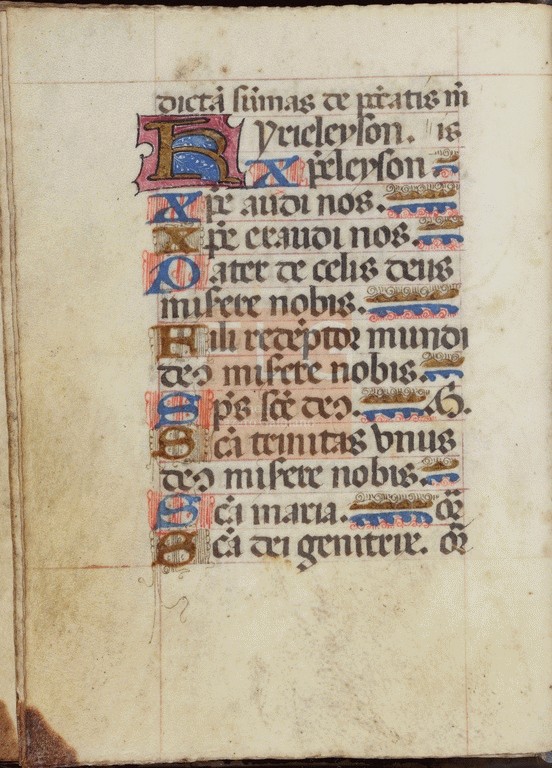 dictã sũmas de pctatis m̃
Kyrieleyson. is
Xp̃eleyson
Xp̃e audi nos.
Xp̃e exaudi nos.
Pater de celis deus
misere nobis.
Fili redẽptor mundi
deꝰ misere nobis.
Sp̃s sc̃e deꝰ.
Sc̃a trinitas vnus
deꝰ misere nobis.
Sc̃a maria. or̃
Sc̃a dei genitrix. or̃